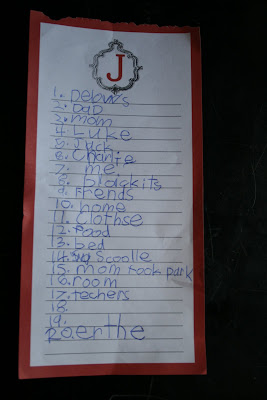 J
1. DebWs
2. DaD
3. mom
4. Luke
5. Jack
6. Change
7. me
8. blackits
9. Frends
10. home
11. Clothse
12. Food
13. bed
14. Scoolle
15. mom rook park
16. room
17. techers
18.
19.
20. erthe